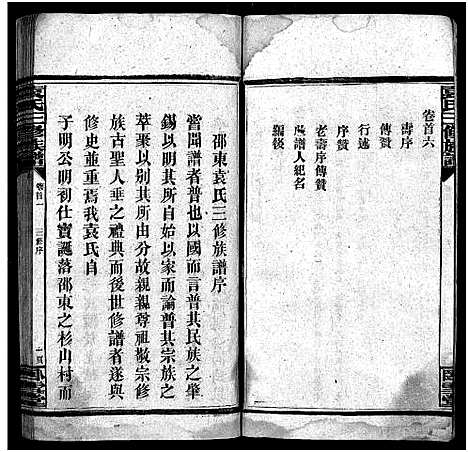 卷首六
壽序
傳贊
行述
序贊
老壽序傳贊
譜人紀名
編後
邵東袁氏三修族譜序
嘗聞譜者普也以國而言普其民族之肇
錫以明其所自始以家而論普其宗族之
萃聚以別其所由分故親親尊祖敬宗修
族古聖人垂之禮典而後世修譜者遂與
修史並重焉我袁氏自
子明公明初仕寶誕落邵東之杉山村而
袁氏三修族譜
卷首一
三修序